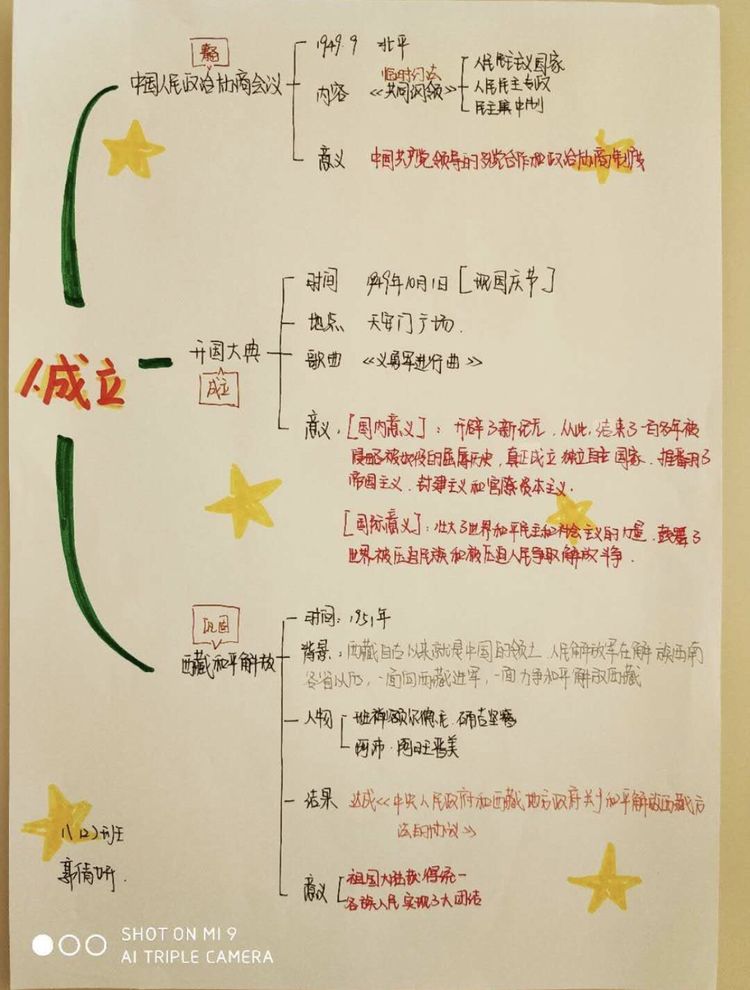 筹备
中国人民政治协商会议
1949.9 北平
内容 临时宪法
《共同纲领》
人民民主主义国家
人民民主专政
民主集中制
意义 中国共产党领导的多党合作和政治协商制度
1.成立
开国大典
成立
时间 1949年10月1日[现国庆节]
地点 天安门广场.
歌曲 《义勇军进行曲》
意义. [国内意义]: 开辟了新纪元, 从此, 结束了一百多年被
侵略被奴役的屈辱历史, 真正成立独立自主国家. 推翻了
帝国主义. 封建主义和官僚资本主义.
[国际意义]: 壮大了世界和平民主和社会主义的力量. 鼓舞了
世界被压迫民族和被压迫人民争取解放斗争.
巩固
西藏和平解放
时间: 1951年
背景: 西藏自古以来就是中国的领土 人民解放军在解放西南
各省以后, 一面向西藏进军, 一面力争和平解放西藏
人物 班禅额尔德尼·确吉坚赞
阿沛·阿旺晋美
结果 达成《中央人民政府和西藏地方政府关于和平解放西藏办
法的协议》
意义 祖国大陆获得统一
各族人民实现了大团结
八(2)班
郭倩妍.
SHOT ON MI 9
AI TRIPLE CAMERA